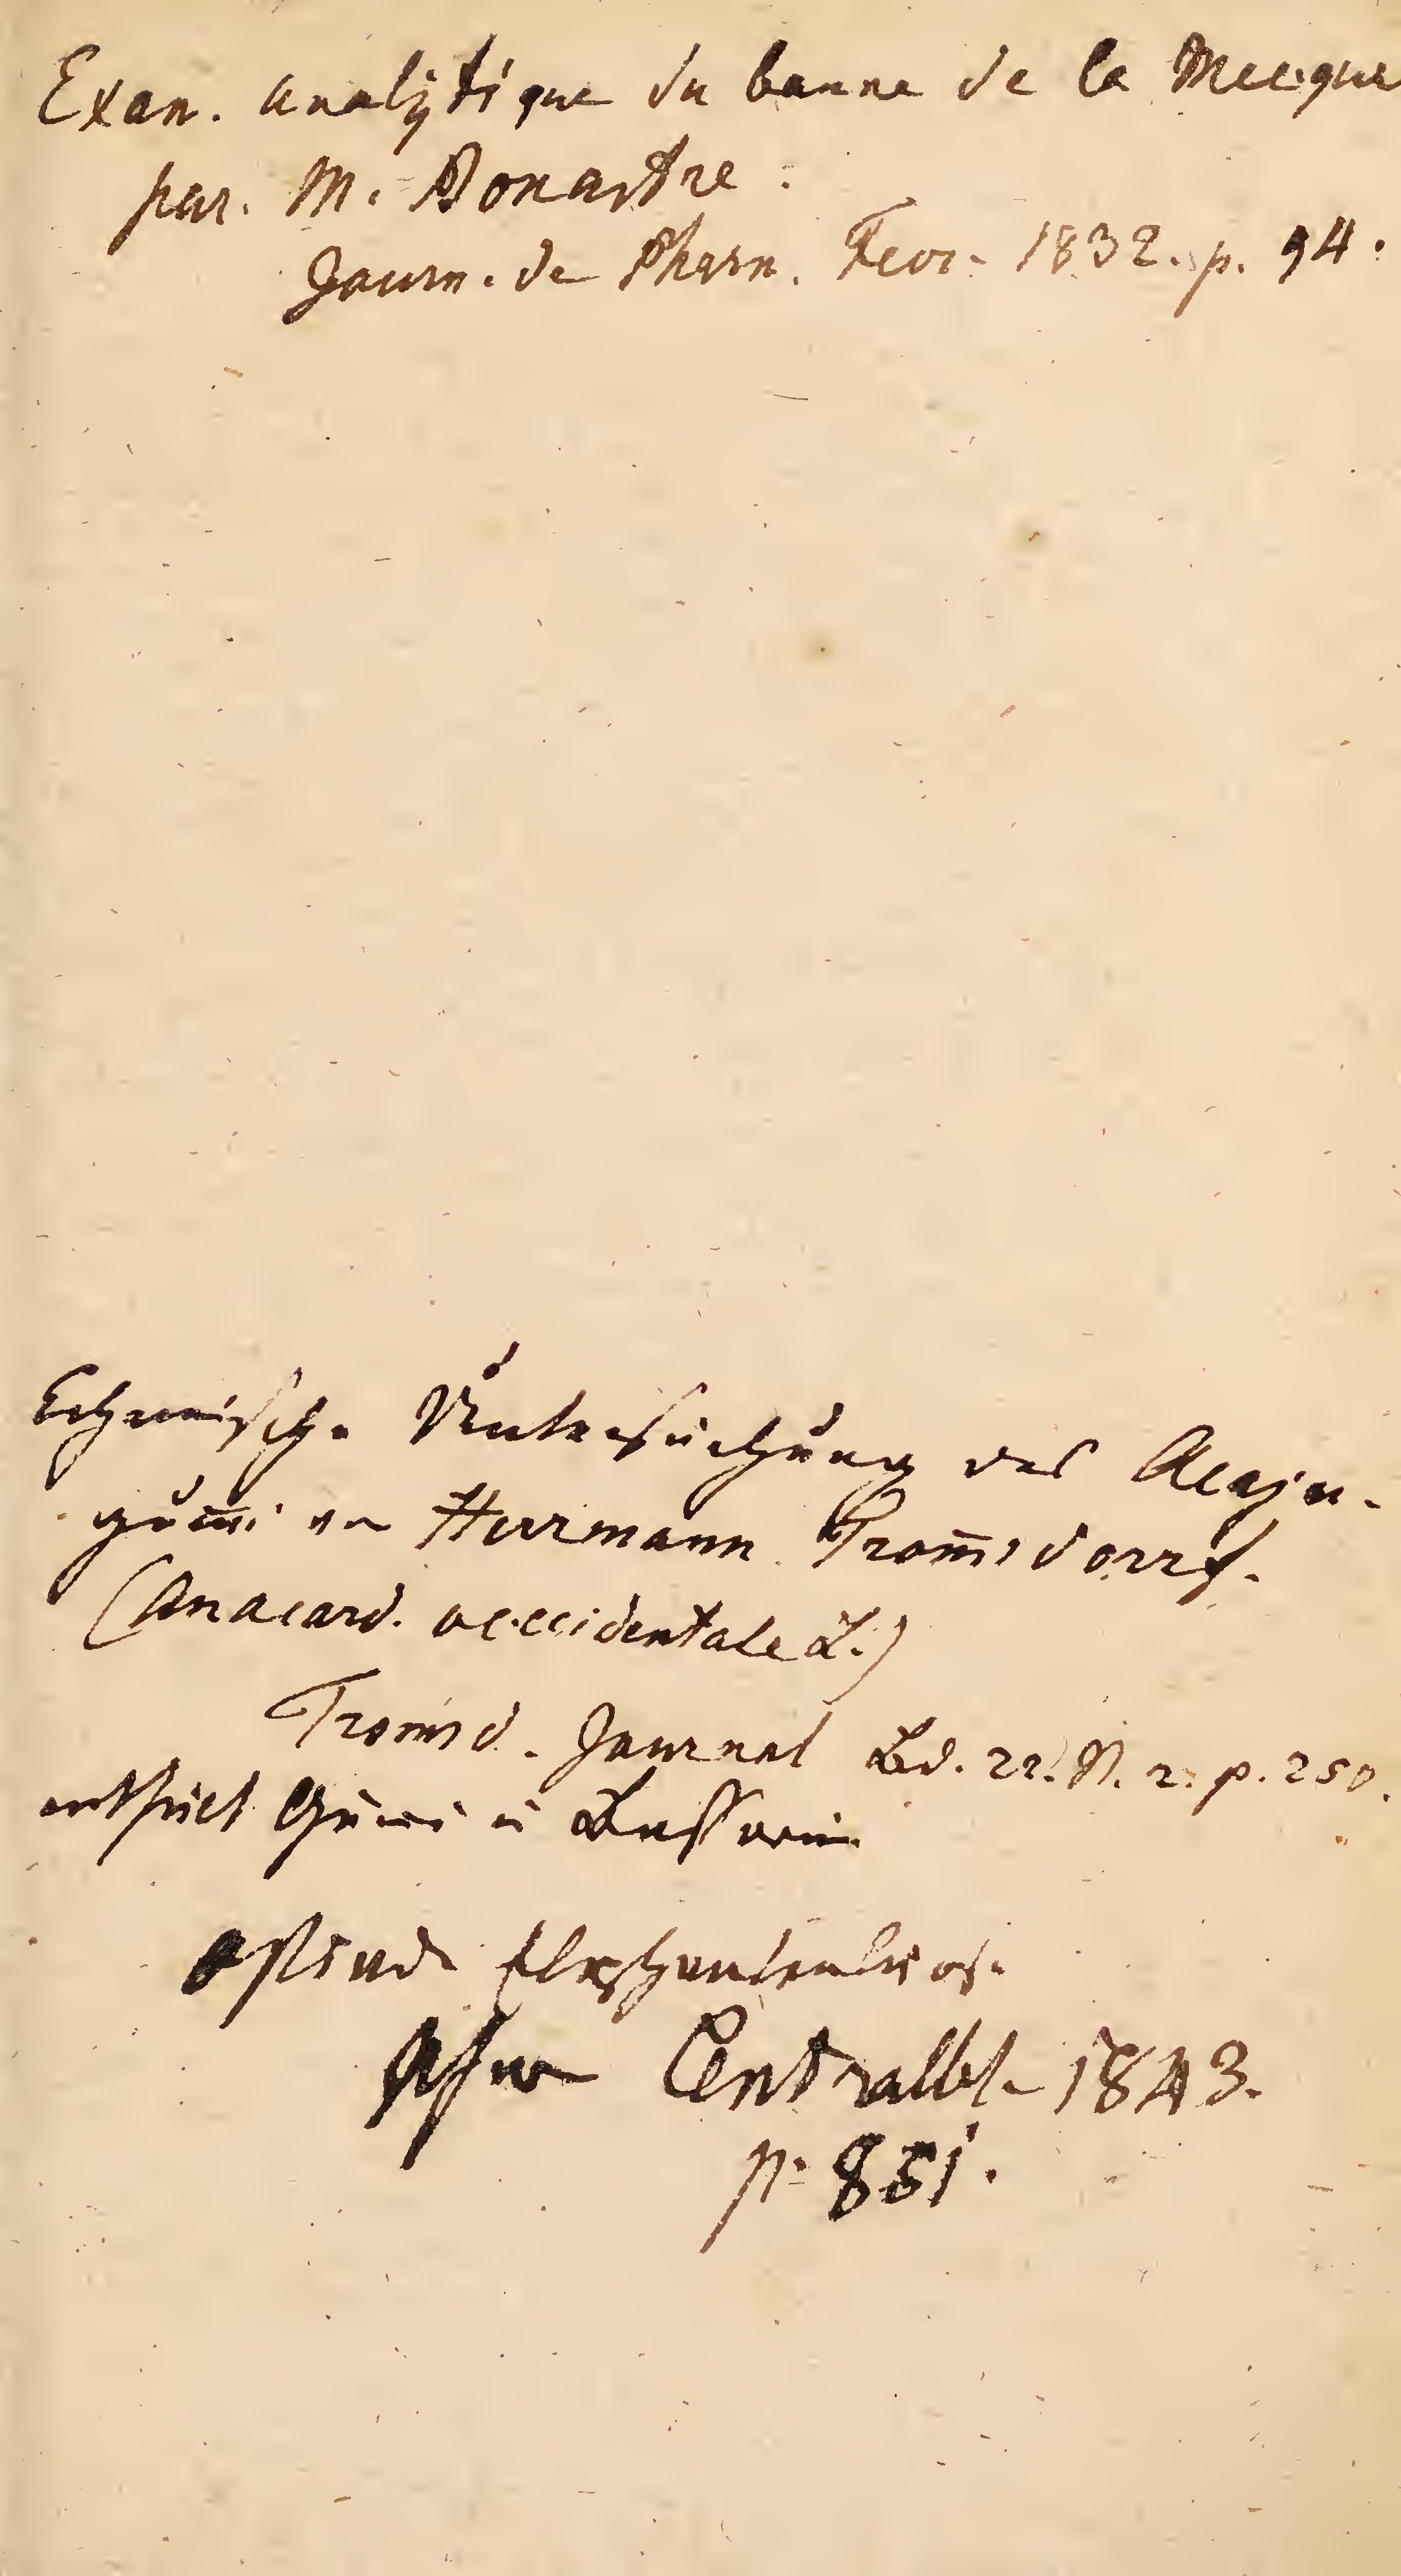 Exam. analytique du baume de la Mecque
par. M. Bonastre.
Journ. de Pharm. Fevr. 1832. p. 94.
Chemische Untersuchung des Acaju-
gum̅i von Herrmann Trom̅sdorff.
(Anacard. occidentale L.)
Trom̅sd. Journal Bd. 22. St. 2. p. 250.
enthielt Gum̅i u Bassorin
ostind. Elephantenläuse
Pharm Centralbl. 1843.
p. 851.